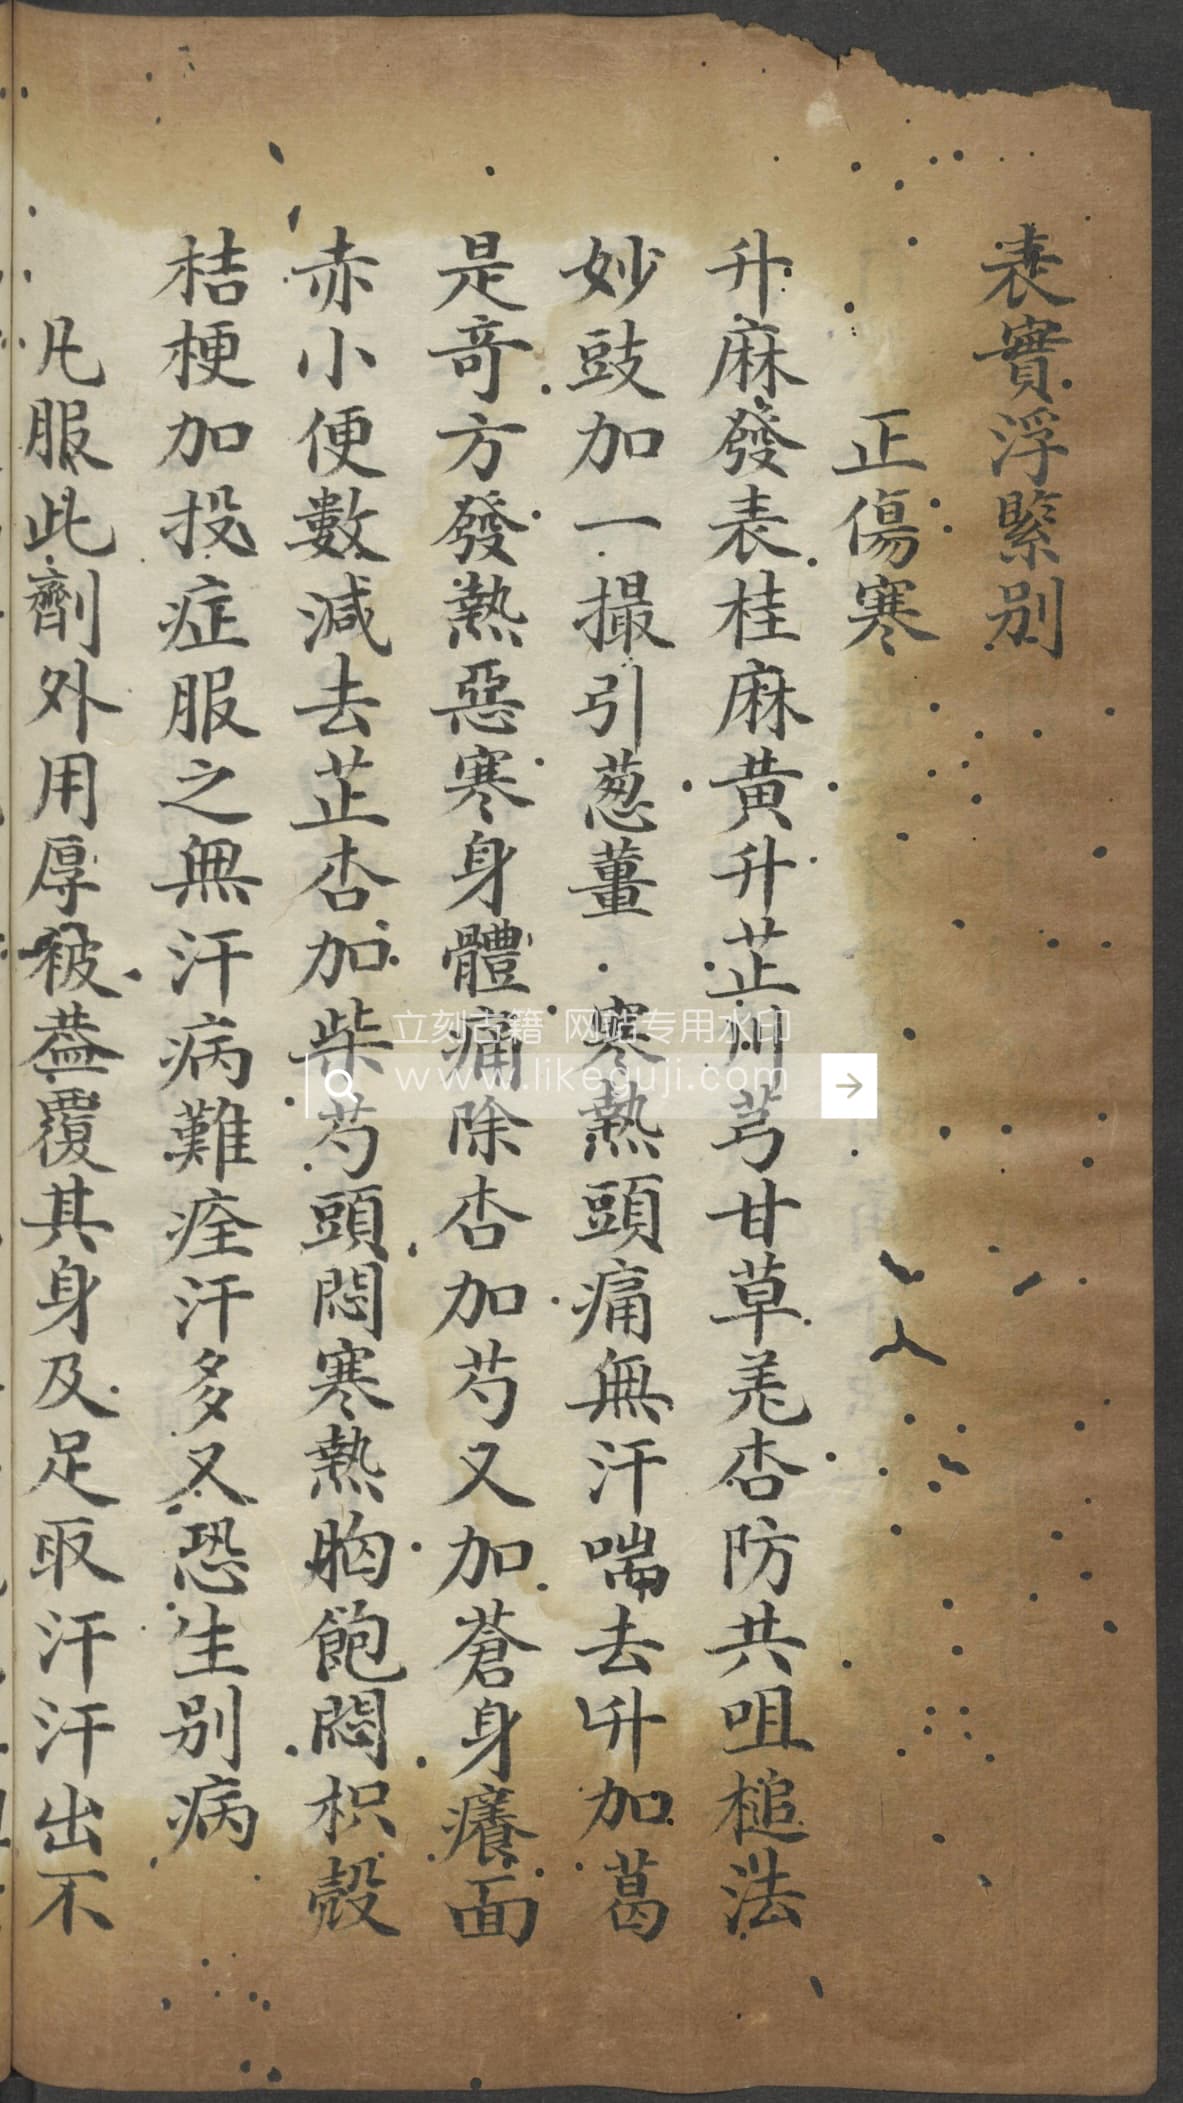 表實浮緊别
正傷寒
升麻發表桂麻黄升芷川芎甘草羗杏防共咀槌法
妙豉加一撮引葱薑寒熱頭痛無汗喘去升加葛
是竒方發熱惡寒身體痛除杏加芍又加蒼身癢面
赤小便數减去芷杏加柴芍頭悶寒熱胸飽悶枳殼
桔梗加投症服之無汗病難痊汗多又恐生别病
凡服此劑外用厚被葢覆其身及足取汗汗出不
立刻古籍 网站专用水印
www.likeguji.com